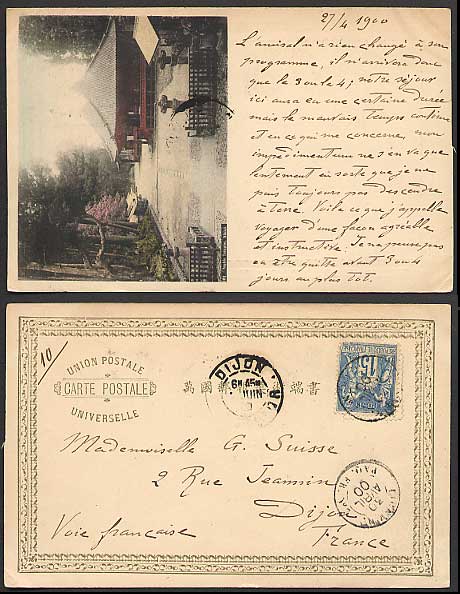 27/4 1900
L'amiral n'a rien changé à son
programme, il n'arrivera donc
que le 3 ou le 4; notre séjour
ici aura eu une certaine durée
mais le mauvais temps continue
et en ce qui me concerne, mon
impedimentum ne s'en va que
lentement en sorte que je ne
puis toujours pas descendre
à terre. Voilà ce que j'appelle
voyager d'une façon agréable
et instructive. Je ne pense pas
en être quitte avant 3 ou 4
jours au plus tôt.
10
UNION POSTALE
CARTE POSTALE
UNIVERSELLE
萬國 端書
DIJON
6E 45M
JUIN
15
Mademoiselle G. Suisse
2 Rue Jeannin
Dijon
France
Voie française
30
AVRIL
00